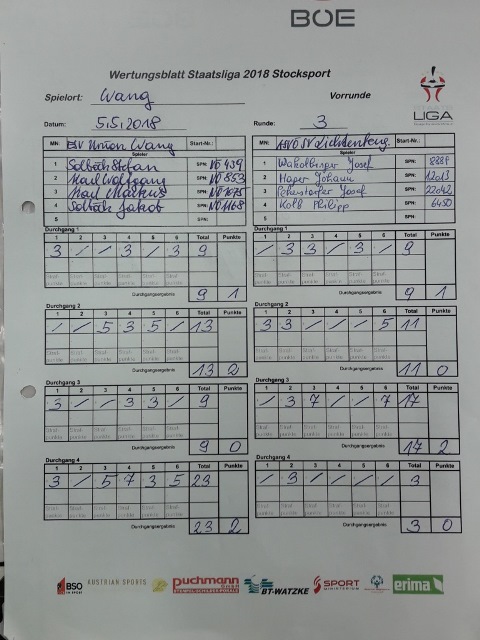 BÖE
Wertungsblatt Staatsliga 2018 Stocksport
Spielort: Wang Vorrunde
LIGA
Datum: 5.5.2018 Runde: 3
MN: ESV Union Wang Start-Nr.:
Spieler
1 Solböck Stefan SPN: NÖ 439
2 Karl Wolfgang SPN: NÖ 553
3 Karl Markus SPN: NÖ 1075
4 Solböck Jakob SPN: NÖ 1168
5 SPN:
MN: Start-Nr.:
Spieler
1 Josef SPN: 8889
2 Johann SPN: 12013
3 Josef SPN: 22042
4 Kolb Philipp SPN: 6450
5 SPN:
Durchgang 1
1 2 3 4 5 6 Total Punkte
3 / / 3 / 3 9
Straf-punkte Straf-punkte Straf-punkte Straf-punkte Straf-punkte Straf-punkte
Durchgangsergebnis 9 1
Durchgang 1
1 2 3 4 5 6 Total Punkte
/ 3 3 / 3 / 9
Straf-punkte Straf-punkte Straf-punkte Straf-punkte Straf-punkte Straf-punkte
Durchgangsergebnis 9 1
Durchgang 2
1 2 3 4 5 6 Total Punkte
/ / 5 3 5 / 13
Straf-punkte Straf-punkte Straf-punkte Straf-punkte Straf-punkte Straf-punkte
Durchgangsergebnis 13 2
Durchgang 2
1 2 3 4 5 6 Total Punkte
3 3 / / / 5 11
Straf-punkte Straf-punkte Straf-punkte Straf-punkte Straf-punkte Straf-punkte
Durchgangsergebnis 11 0
Durchgang 3
1 2 3 4 5 6 Total Punkte
3 / / 3 3 / 9
Straf-punkte Straf-punkte Straf-punkte Straf-punkte Straf-punkte Straf-punkte
Durchgangsergebnis 9 0
Durchgang 3
1 2 3 4 5 6 Total Punkte
/ 3 7 / / 7 17
Straf-punkte Straf-punkte Straf-punkte Straf-punkte Straf-punkte Straf-punkte
Durchgangsergebnis 17 2
Durchgang 4
1 2 3 4 5 6 Total Punkte
3 / 5 7 3 5 23
Straf-punkte Straf-punkte Straf-punkte Straf-punkte Straf-punkte Straf-punkte
Durchgangsergebnis 23 2
Durchgang 4
1 2 3 4 5 6 Total Punkte
/ 3 / / / / 3
Straf-punkte Straf-punkte Straf-punkte Straf-punkte Straf-punkte Straf-punkte
Durchgangsergebnis 3 0
BSO AUSTRIAN SPORTS puchmann BT-WATZKE SPORT MINISTERIUM erima